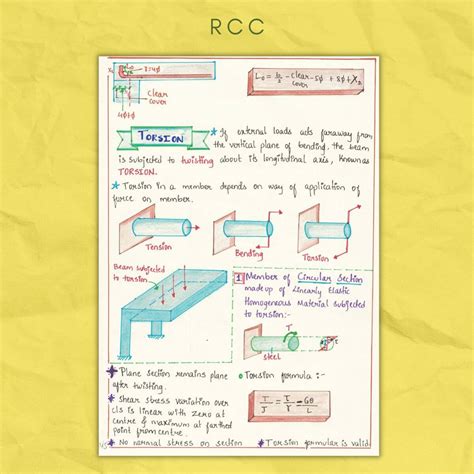 RCC
8=4ϕ
Clear
cover
4ϕ
L₀ = - clear - 5ϕ + 8ϕ +
cover
TORSION
* If external loads acts faraway from
the vertical plane of bending, the beam
is subjected to twisting about its longitudinal axis, known as
TORSION.
* Torsion in a member depends on way of application of
force on member.
Tension
Bending
Torsion
Beam subjected
to torsion
1 Member of Circular Section
made up of Linearly Elastic
Homogeneous Material subjected
to torsion:-
T
steel
* Plane section remains plane
after twisting.
* Shear stress variation over
c/s is linear with zero at
centre & maximum at farthed
point from centre.
* No normal stress on section
Torsion formula :-
T/J = τ/r = Gθ/L
* Torsion formula is valid